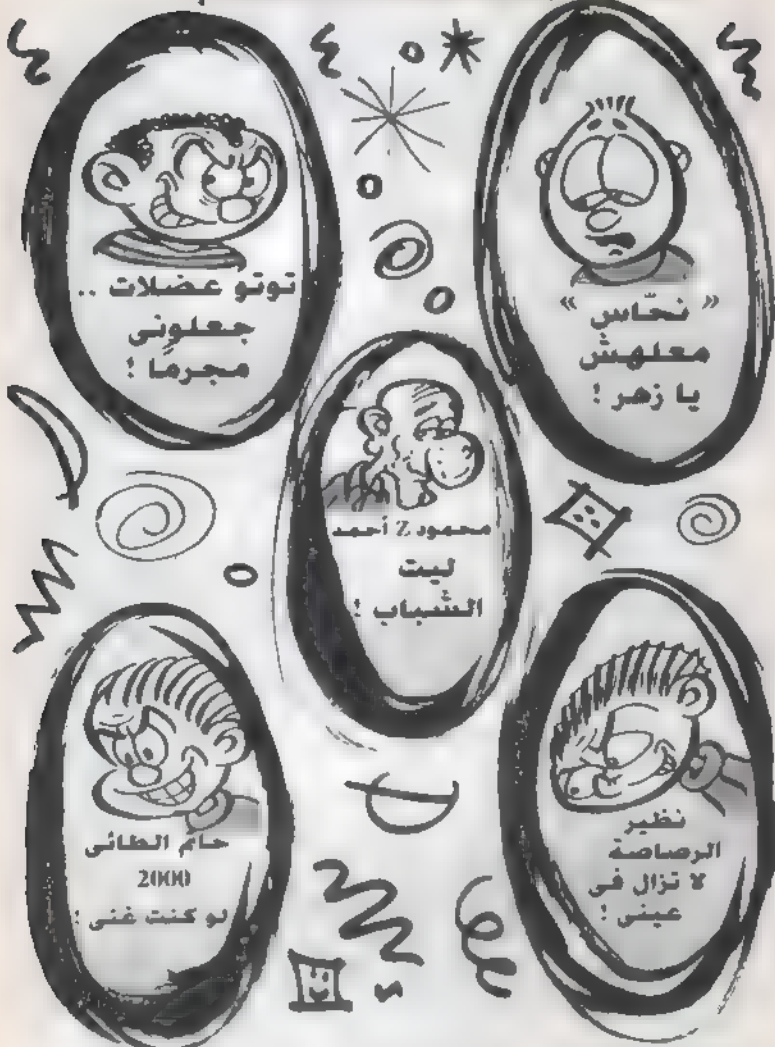 « نحّاس »
معلهش
يا زهر !
توتو عضلات ..
جعلونى
مجرمًا !
محمود Z أحمد
ليت
الشباب !
نظير
الرصاصة
لا تزال فى
عينى !
حاتم الطائى
2000
لو كنت غنى !